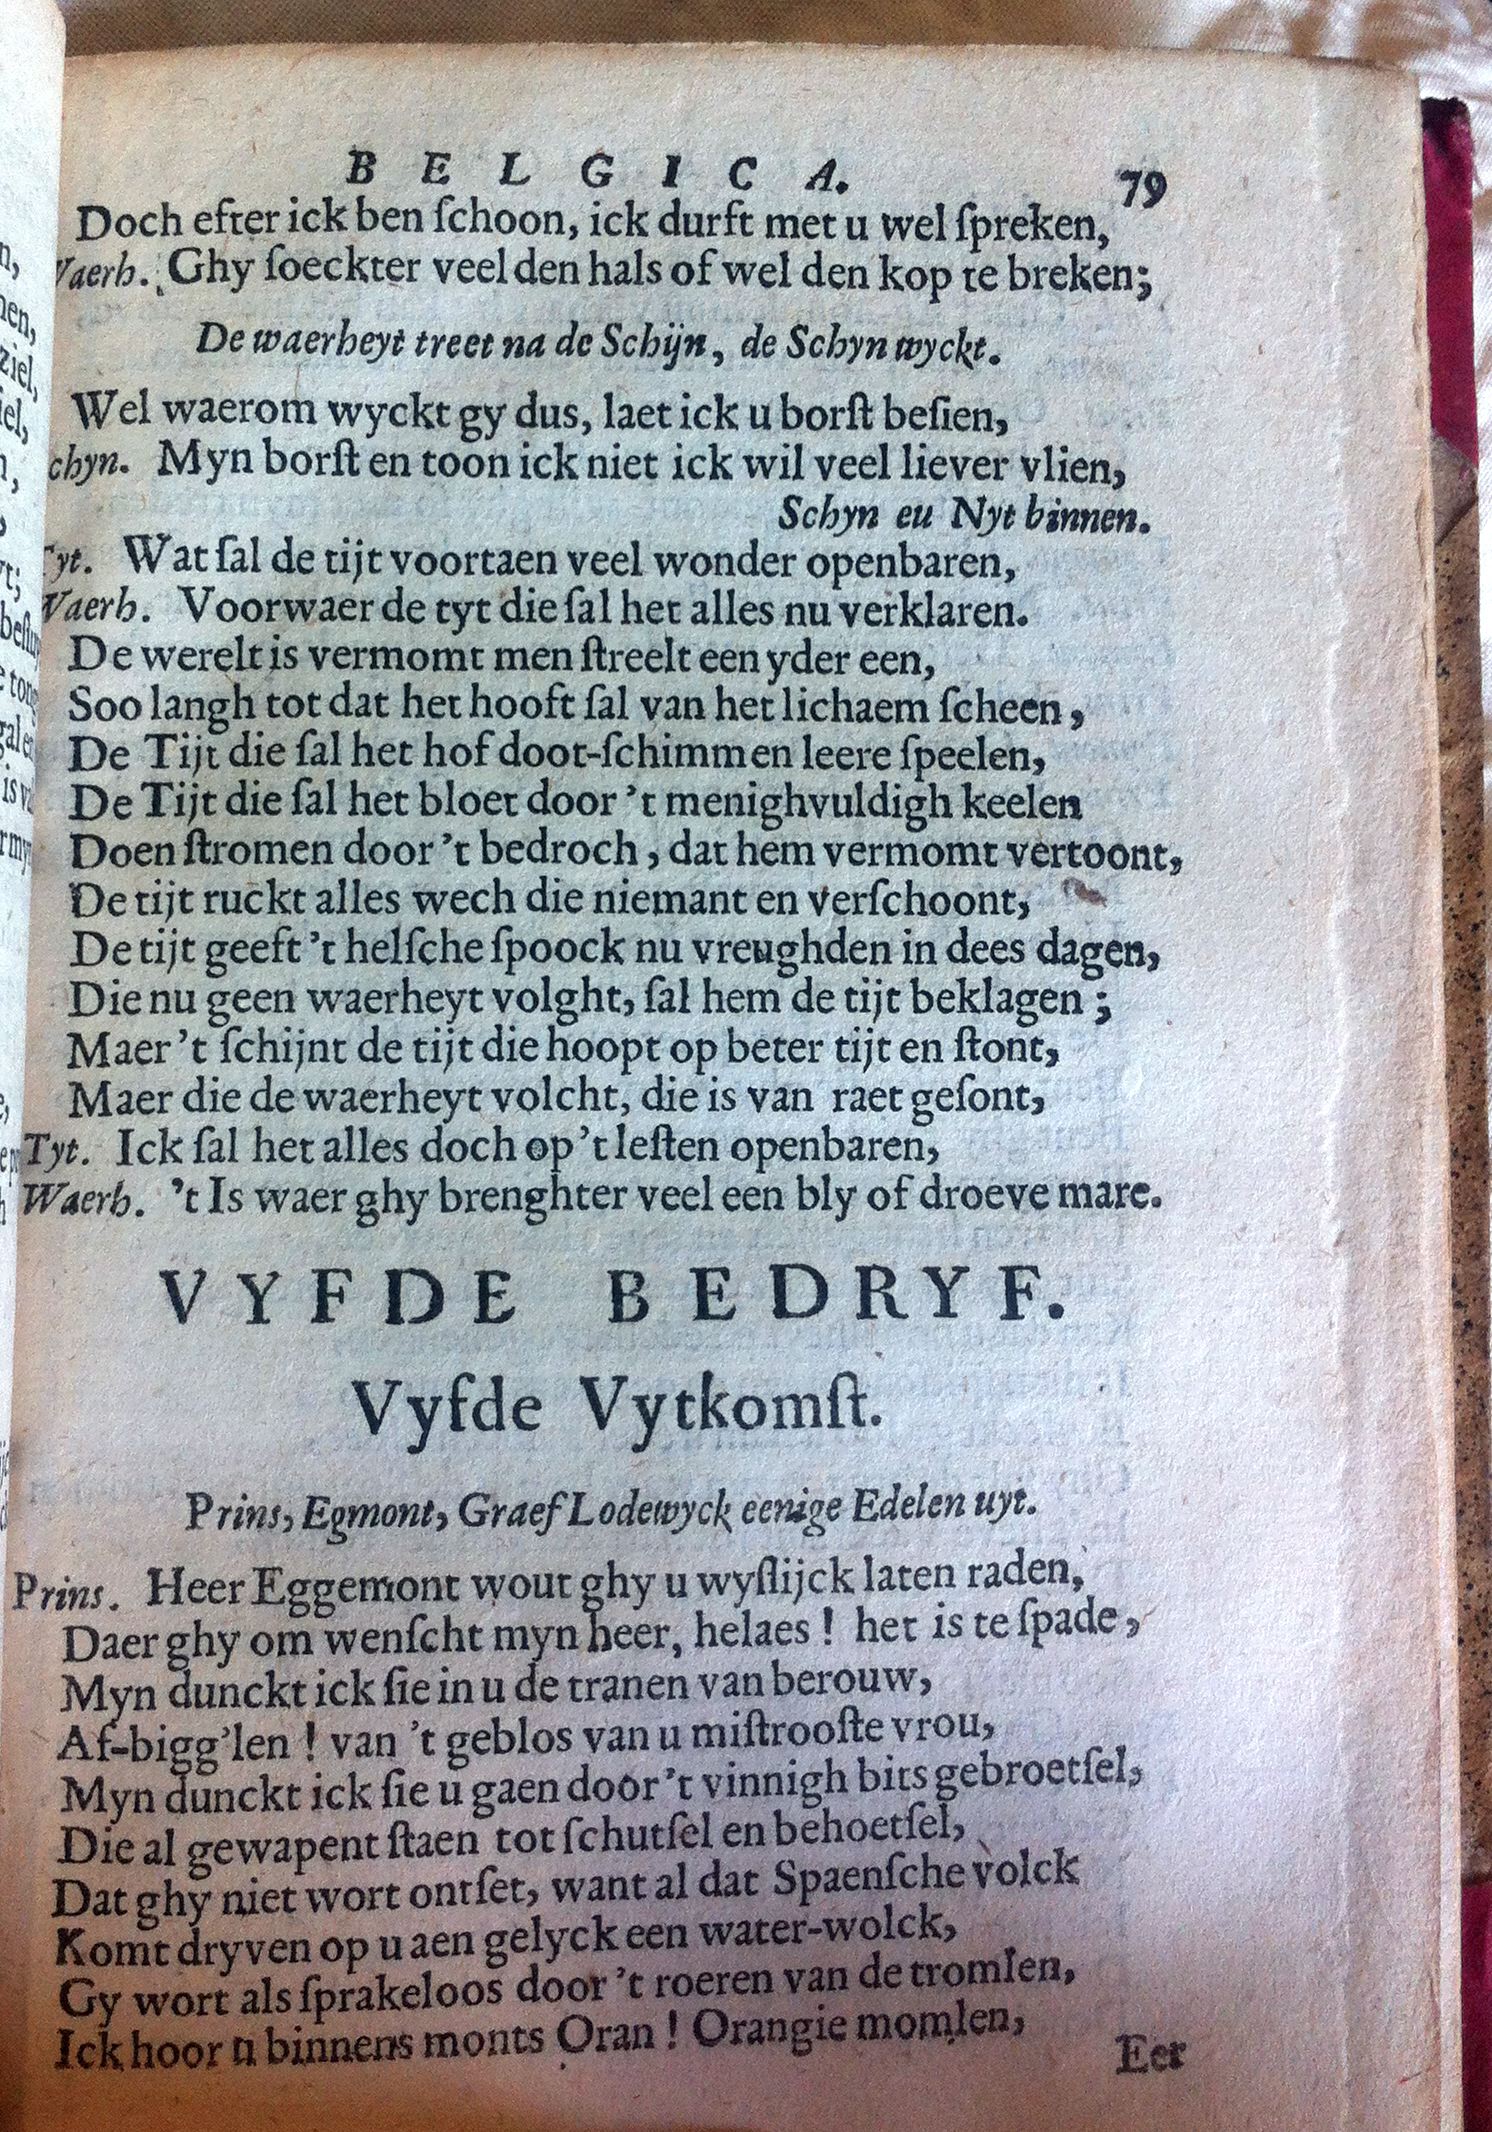 BELGICA. 79
Doch efter ick ben ſchoon, ick durft met u wel ſpreken,
Waerh. Ghy ſoeckter veel den hals of wel den kop te breken;
De waerheyt treet na de Schijn, de Schyn wyckt.
Wel waerom wyckt gy dus, laet ick u borſt beſien,
chyn. Myn borſt en toon ick niet ick wil veel liever vlien,
Schyn eu Nyt binnen.
Tyt. Wat ſal de tijt voortaen veel wonder openbaren,
Waerh. Voorwaer de tyt die ſal het alles nu verklaren.
De werelt is vermomt men ſtreelt een yder een,
Soo langh tot dat het hooft ſal van het lichaem ſcheen,
De Tijt die ſal het hof doot-ſchimmen leere ſpeelen,
De Tijt die ſal het bloet door 't menighvuldigh keelen
Doen ſtromen door 't bedroch, dat hem vermomt vertoont,
De tijt ruckt alles wech die niemant en verſchoont,
De tijt geeft 't helſche ſpoock nu vreughden in dees dagen,
Die nu geen waerheyt volght, ſal hem de tijt beklagen;
Maer 't ſchijnt de tijt die hoopt op beter tijt en ſtont,
Maer die de waerheyt volcht, die is van raet geſont,
Tyt. Ick ſal het alles doch op 't leſten openbaren,
Waerh. 't Is waer ghy brenghter veel een bly of droeve mare.
VYFDE BEDRYF.
Vyfde Vytkomſt.
Prins, Egmont, Graef Lodewyck eenige Edelen uyt.
Prins. Heer Eggemont wout ghy u wyſlijck laten raden,
Daer ghy om wenſcht myn heer, helaes! het is te ſpade,
Myn dunckt ick ſie in u de tranen van berouw,
Af-bigg'len! van 't geblos van u miſtrooſte vrou,
Myn dunckt ick ſie u gaen door 't vinnigh bits gebroetſel,
Die al gewapent ſtaen tot ſchutſel en behoetſel,
Dat ghy niet wort ontſet, want al dat Spaenſche volck
Komt dryven op u aen gelyck een water-wolck,
Gy wort als ſprakeloos door 't roeren van de tromlen,
Ick hoor u binnens monts Oran! Orangie momlen,
Eer